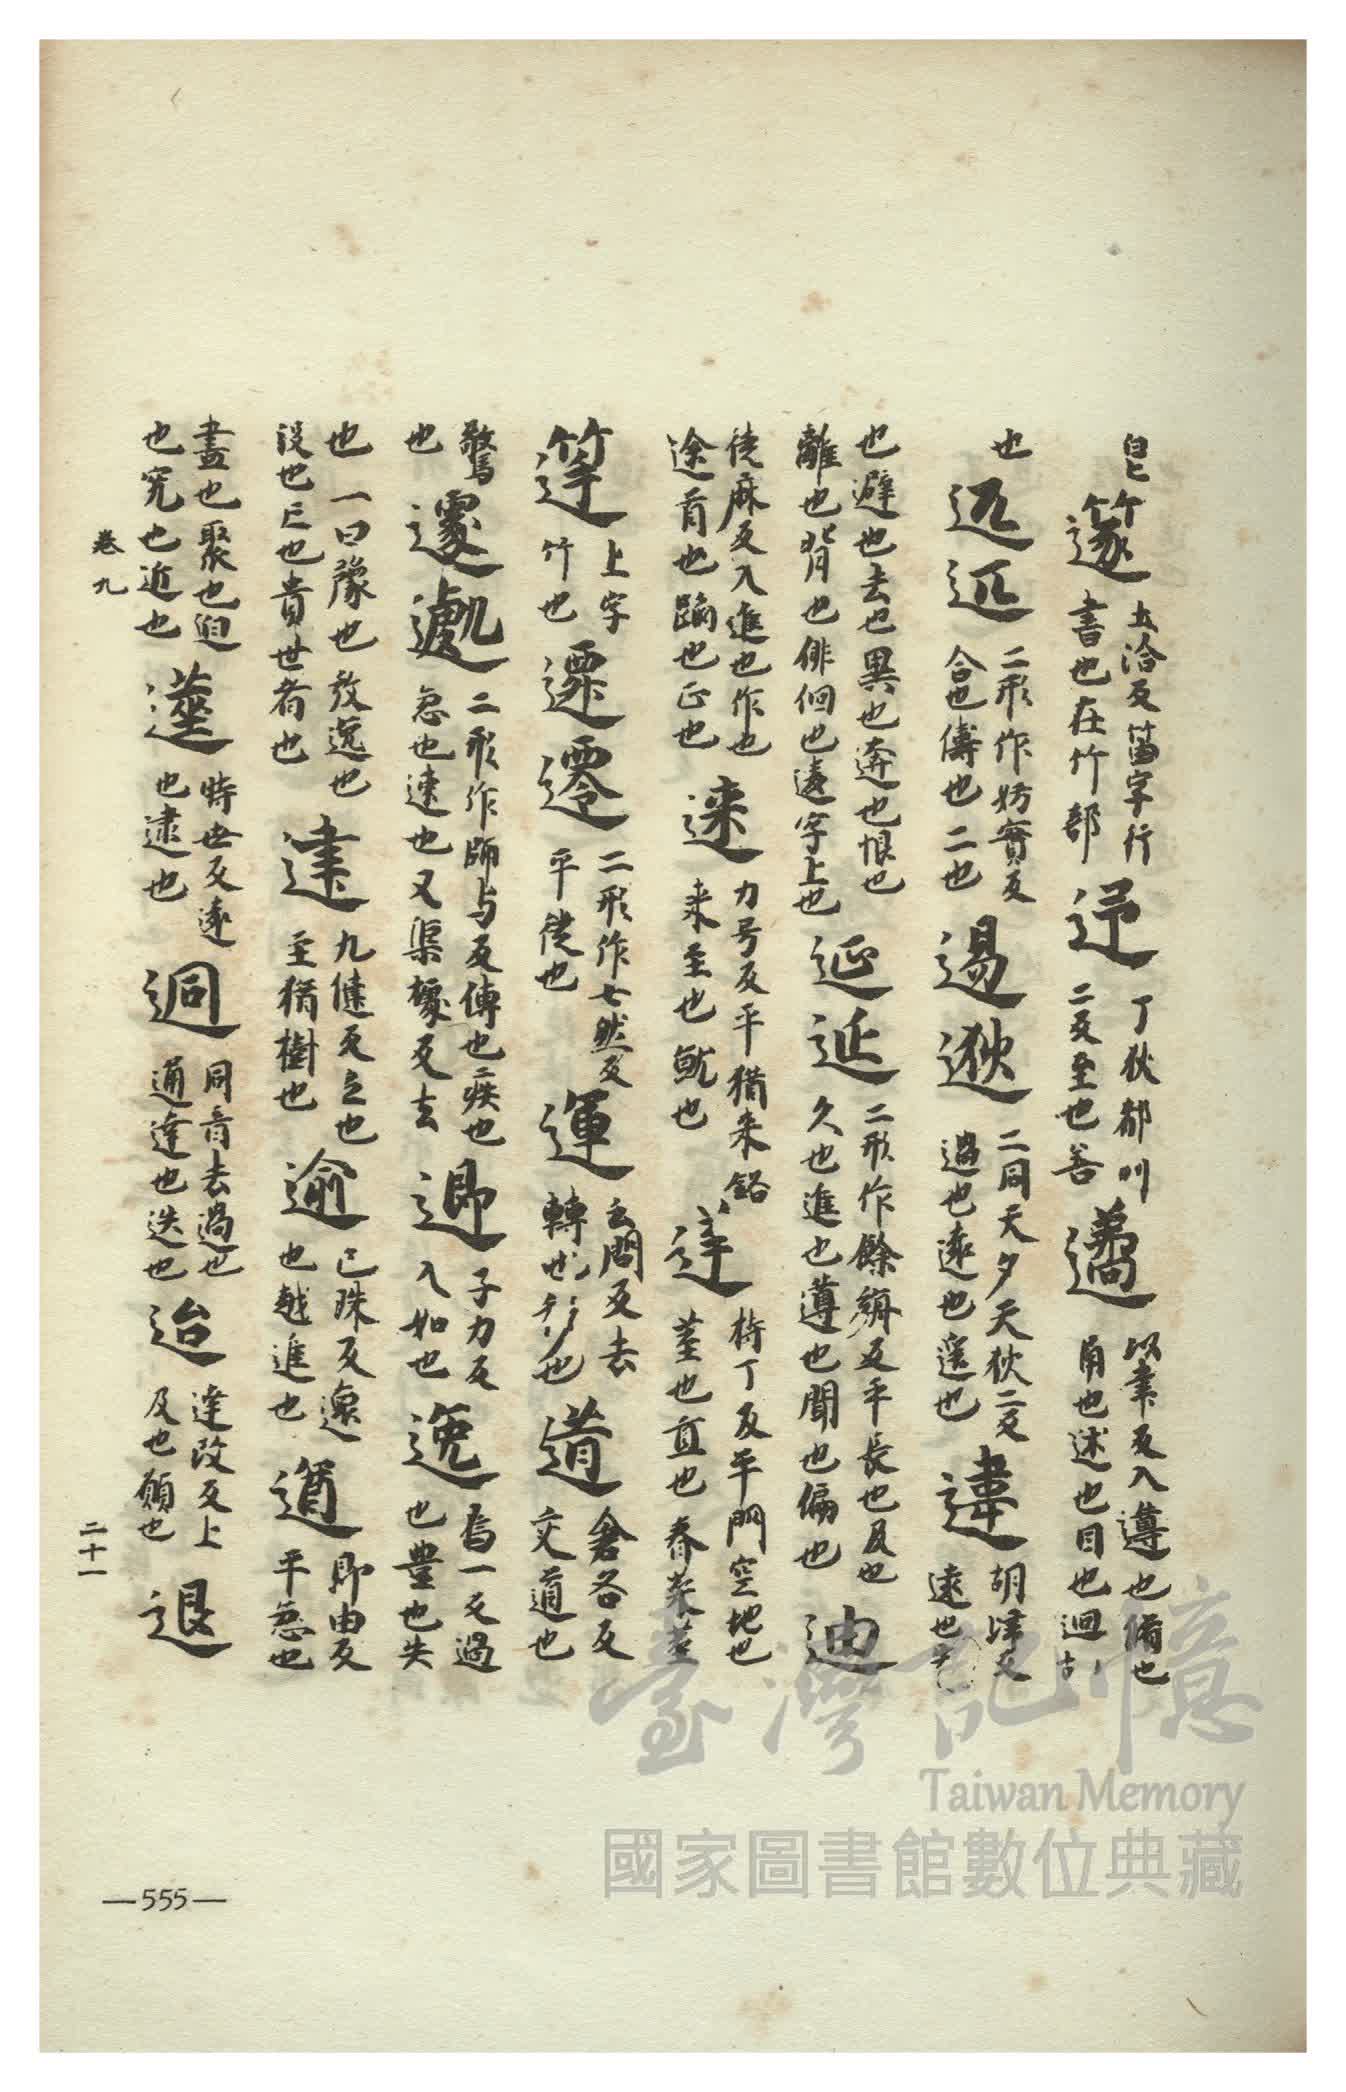 皀 籧 士洽反笛字行
書也在竹部 迓 丁狄都叫
二反至也善 邁 以聿反入遵也循也
甬也述也目也迴
也 迊 匝 二形作妨實反
合也傅也二也 逷 逖 二同天夕天狄二反
過也遠也遥也 違 胡津反
遠也
也避也去也異也奔也恨也
離也背也俳佪也違字上也 延 延 二形作餘旃反平長也及也
久也進也遵也聞也偏也 迪
徒麻反入進也作也
途首也蹈也正也 逨 力号反平猶来䤥
来至也就也 莛 特丁反平門空地也
莖也直也春菜莖
篷 上字
竹也 遷 遷 二形作七然反
平徙也 運 云問反去
轉也行也 逪 倉各反
交道也
驚
也 遽 遽 二形作師与反傳也疾也
急也速也又渠據反去 逎 子力反
入如也 逸 爲一反過
也豊也失
也一曰豫也放逸也
没也亡也責世者也 建 九健反立也
至猶樹也 逾 已珠反邉
也越進也 遒 即由反
平急也
盡也聚也迫
也究也近也 遾 時世反遠
也逮也 迵 同音去過也
通達也迭也 迨 達改反上
及也願也 退
卷九
二十一
—555—
臺灣記憶
Taiwan Memory
國家圖書館數位典藏